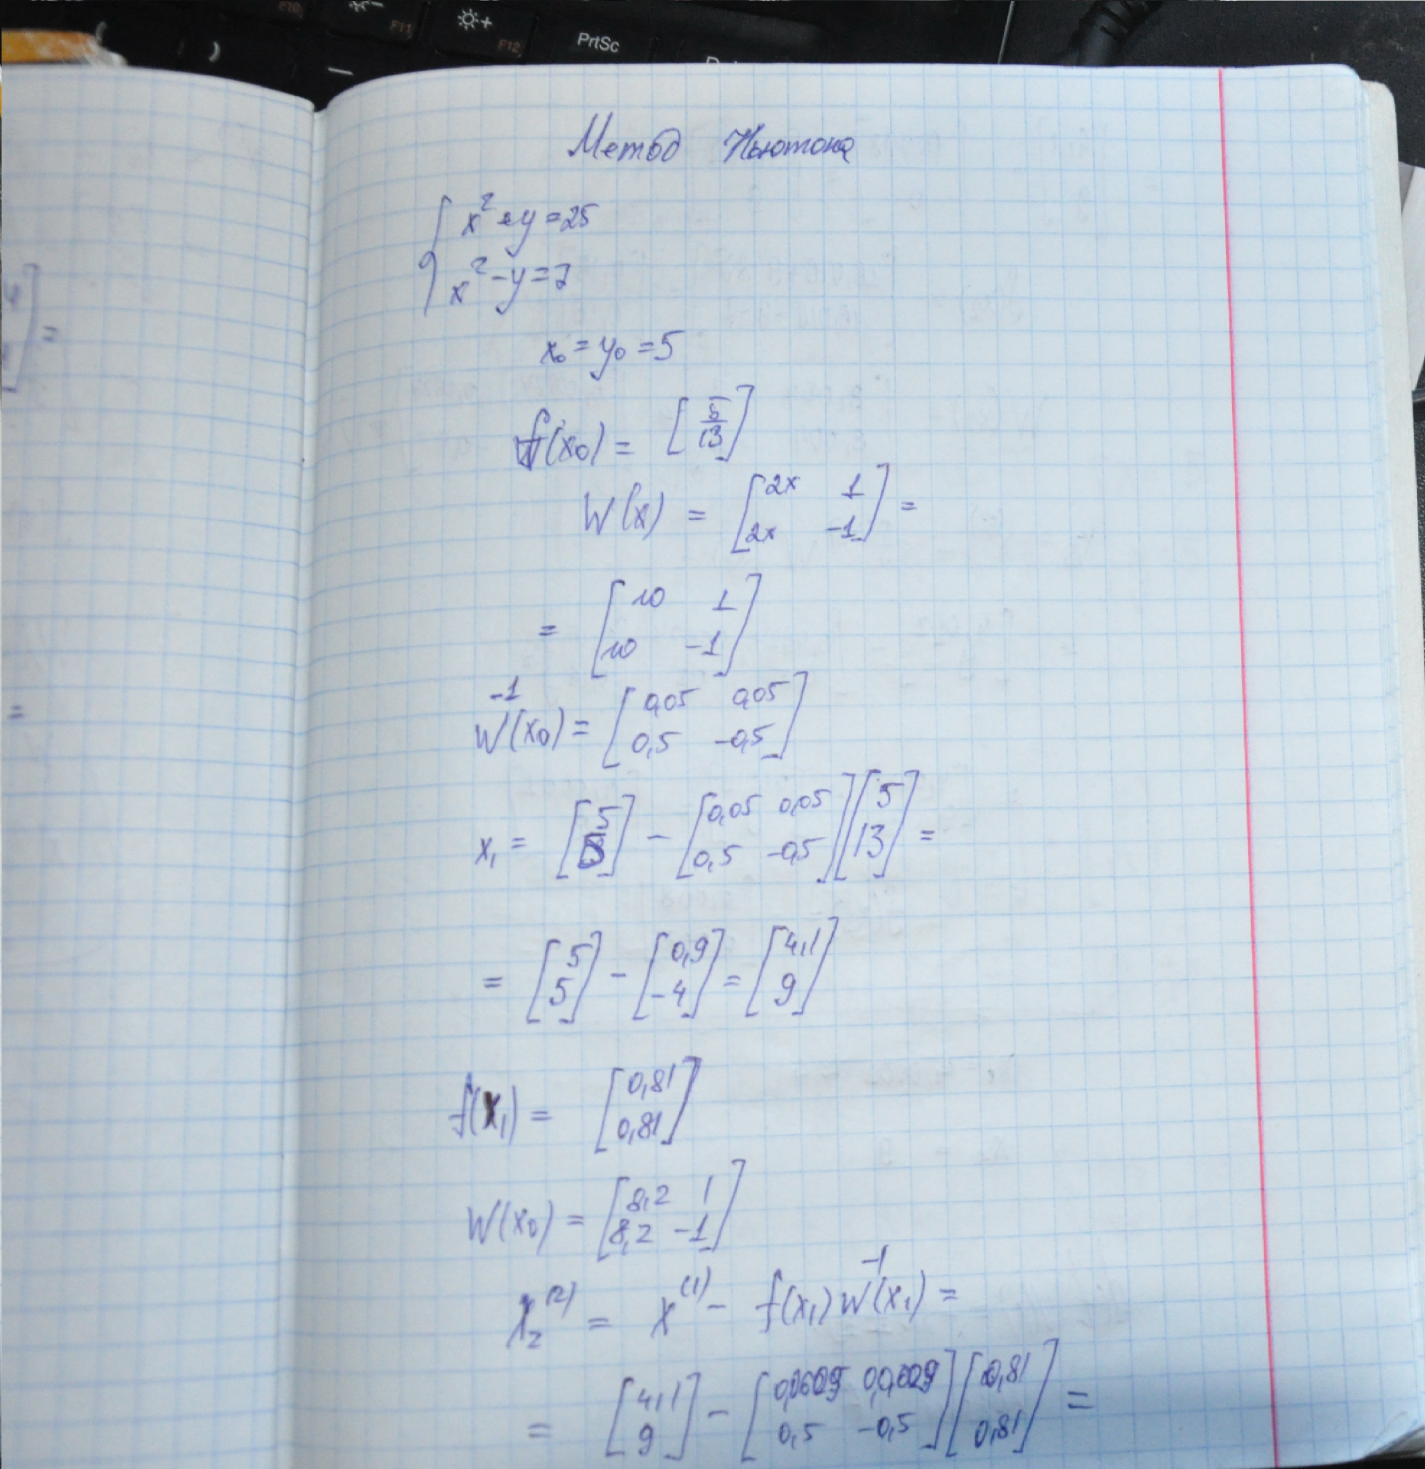 F10
F11
F12
PrtSc
Метод Ньютона
{ x² + y = 25
x² - y = 7
x₀ = y₀ = 5
f(x₀) = [5 13]
W(x) = [2x 1
2x -1] =
= [10 1
10 -1]
W⁻¹(x₀) = [0,05 0,05
0,5 -0,5]
x₁ = [5 5] - [0,05 0,05
0,5 -0,5] [5 13] =
= [5 5] - [0,9 -4] = [4,1 9]
f(x₁) = [0,81 0,81]
W(x₀) = [8,2 1
8,2 -1]
X₂⁽²⁾ = X⁽¹⁾ - f(x₁) W⁻¹(x₁) =
= [4,1 9] - [0,0609 0,0609
0,5 -0,5] [0,81 0,81] =